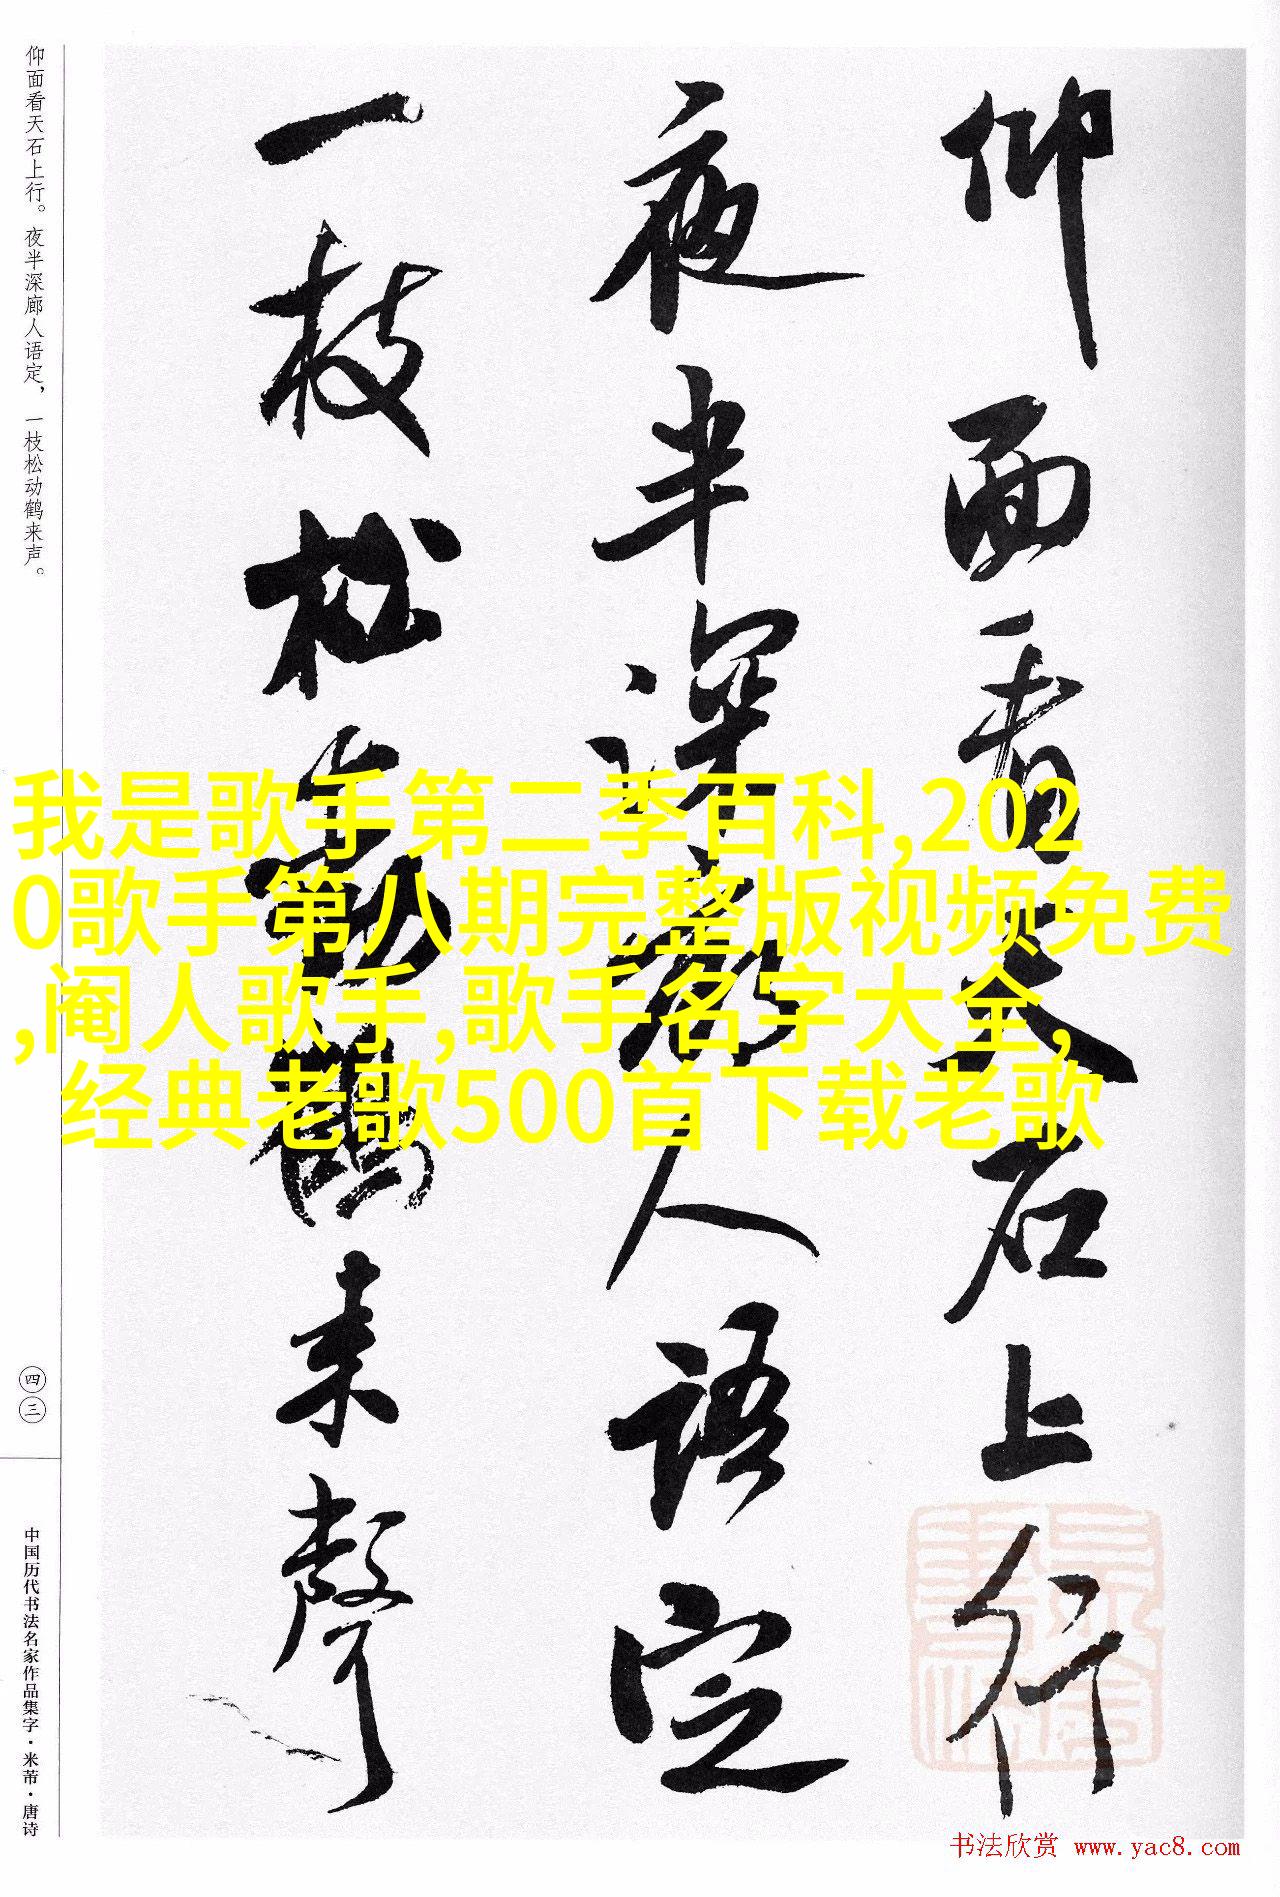 仰面看天石上行
夜半深廊人语定
一枝松动鹤来声
仰面看天石上行。夜半深廊人语定，一枝松动鹤来声。
四三
中国历代书法名家作品集字·米芾·唐诗
我是歌手第二季百科,202
0歌手第八期完整版视频免费
,阉人歌手,歌手名字大全,
经典老歌500首下载老歌
书法欣赏 www.yac8.com